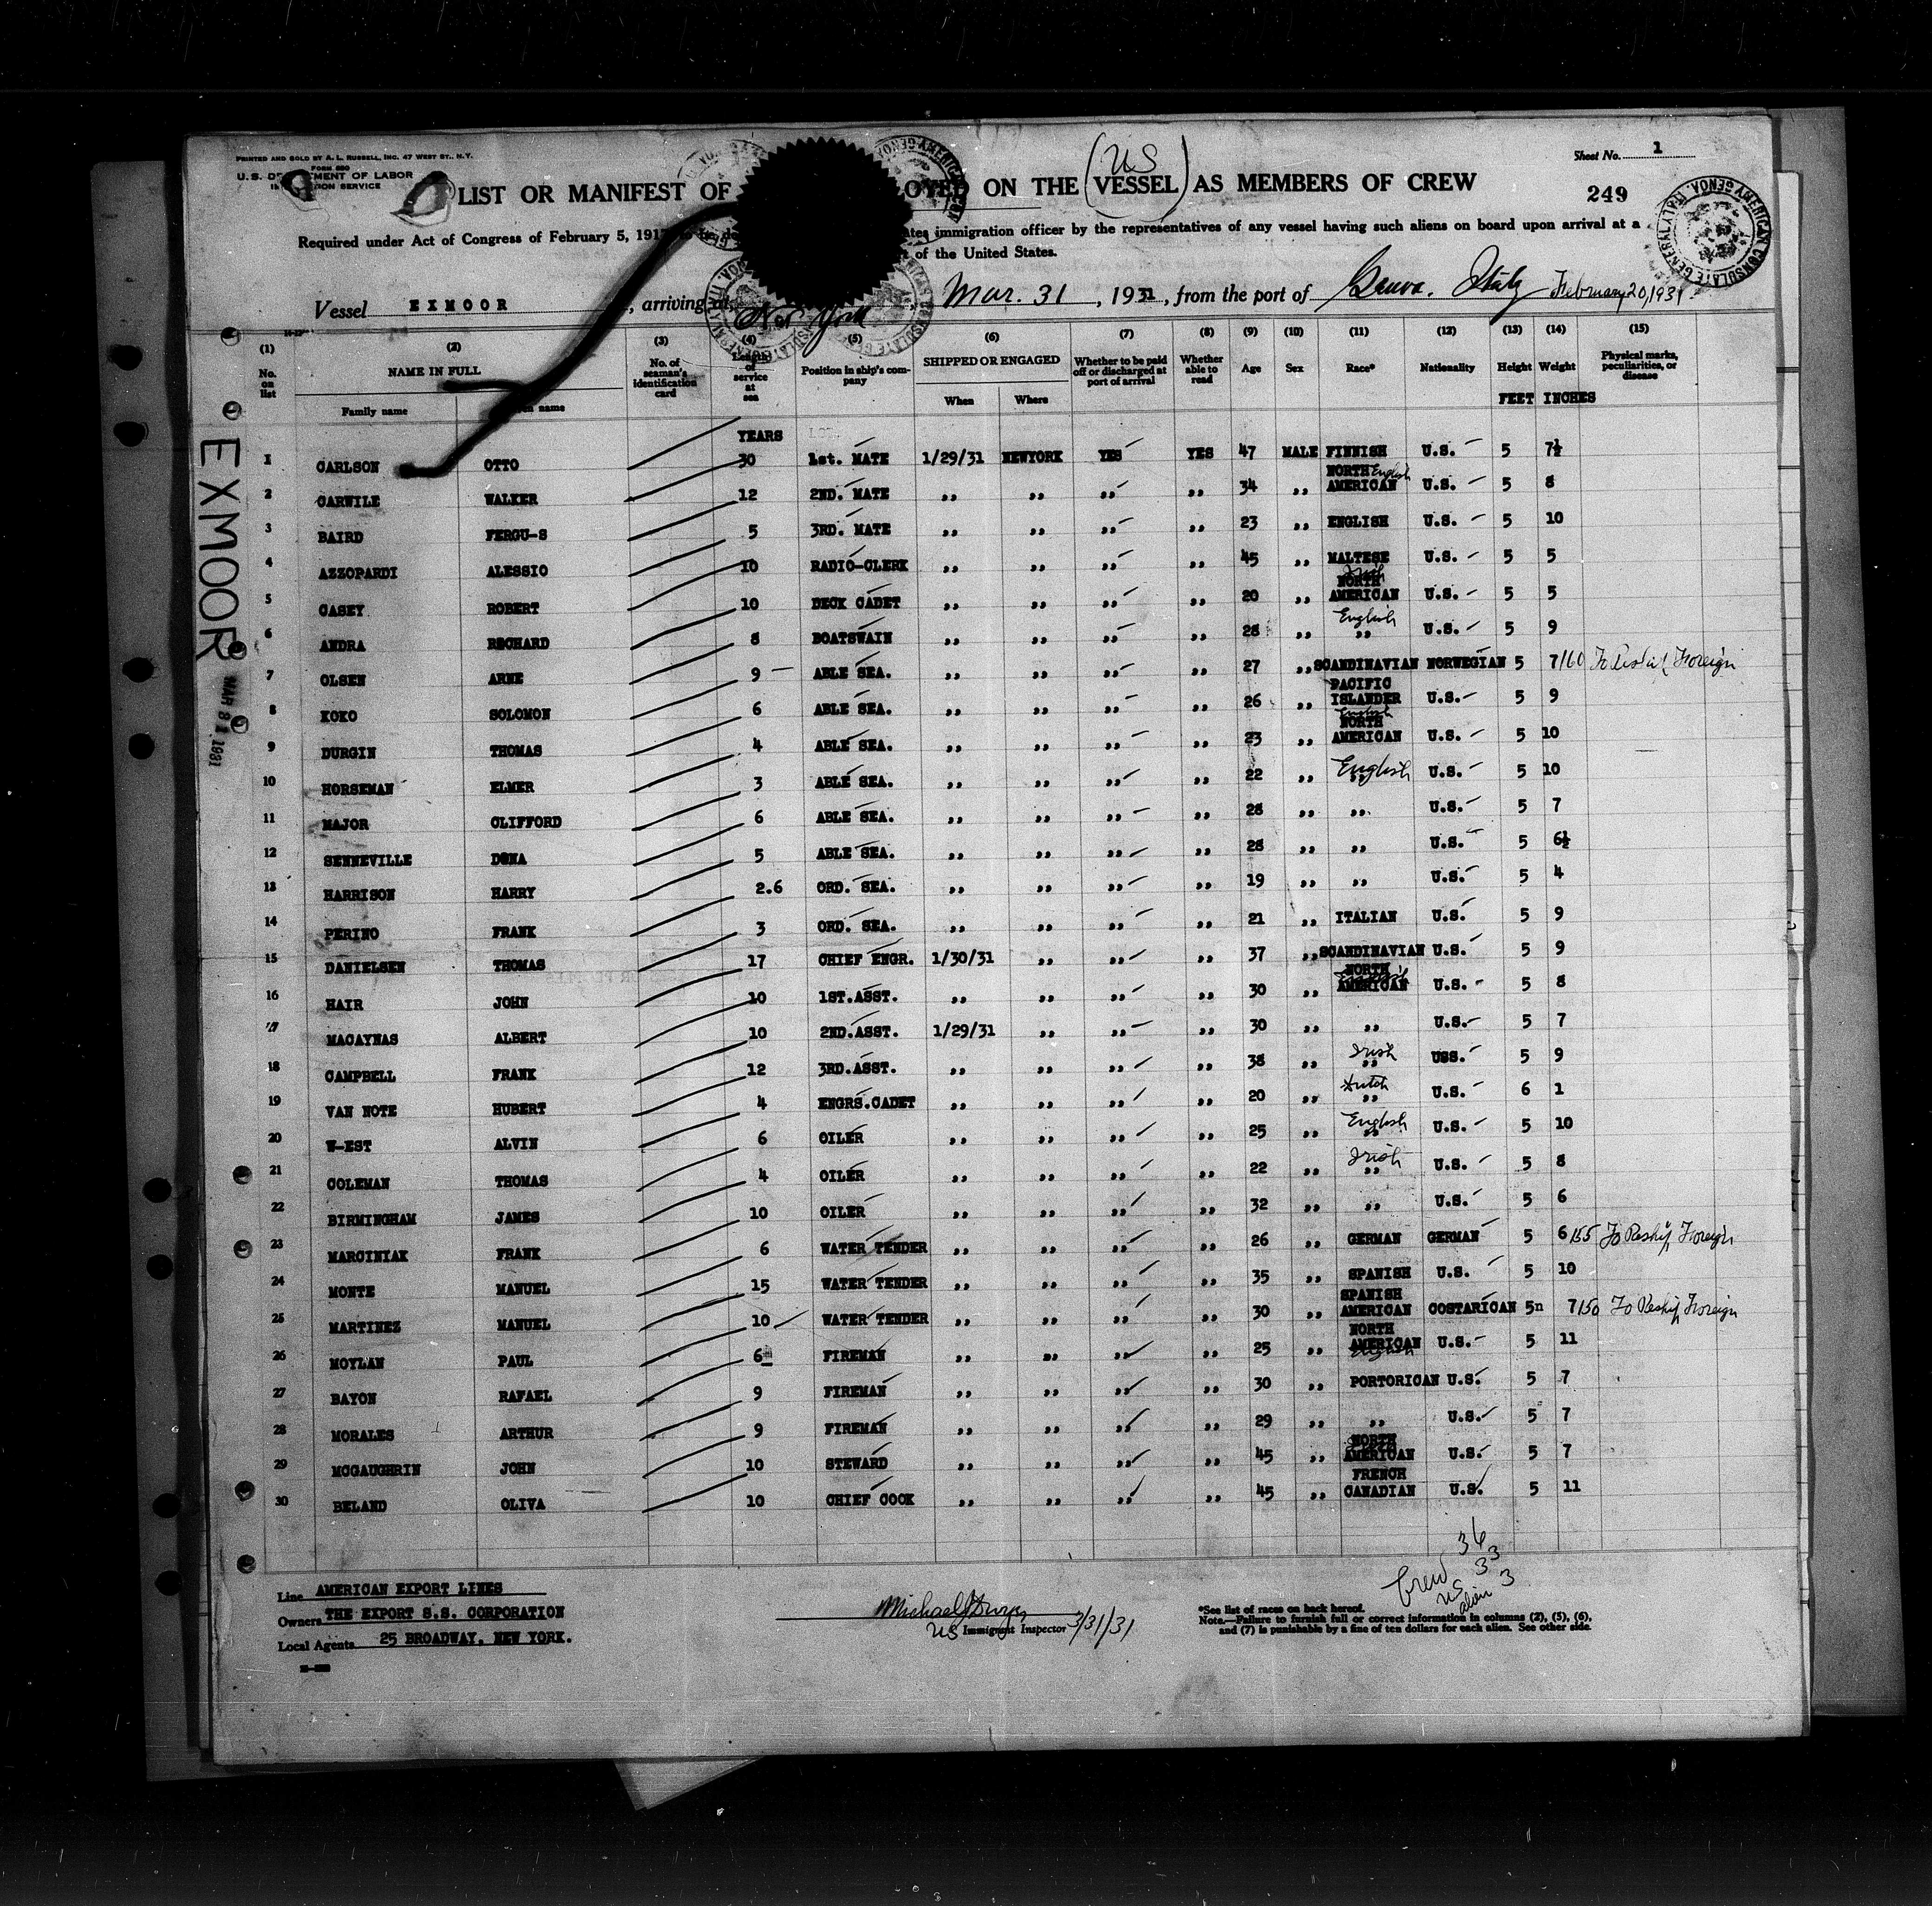 PRINTED AND SOLD BY A. L. RUSSELL, INC. 47 WEST ST., N.Y.
FORM 680
U.S. DE MENT OF LABOR
ION SERVICE
Sheet No. 1
249
LIST OR MANIFEST OF OYED ON THE (VESSEL) AS MEMBERS OF CREW
US
Required under Act of Congress of February 5, 191 tes immigration officer by the representatives of any vessel having such aliens on board upon arrival at a
of the United States.
AMERICAN CONSULATE GENERAL GENOA, ITALY
Vessel EXMOOR, arriving at New York, Mar. 31, 1931, from the port of Genoa. Italy February 20, 1931
(1) (2) (3) (4) (5) (6) (7) (8) (9) (10) (11) (12) (13) (14) (15)
No. on list NAME IN FULL No. of seaman's identification card Length of service at sea Position in ship's company SHIPPED OR ENGAGED Whether to be paid off or discharged at port of arrival Whether able to read Age Sex Race* Nationality Height Weight Physical marks, peculiarities, or disease
Family name name When Where FEET INCHES
YEARS
1 CARLSON OTTO 30 1st. MATE 1/29/31 NEWYORK YES YES 47 MALE FINNISH U.S. 5 7½
2 CARWILE WALKER 12 2ND. MATE ,, ,, ,, ,, 34 ,, NORTH AMERICAN English U.S. 5 8
3 BAIRD FERGU-S 5 3RD. MATE ,, ,, ,, ,, 23 ,, ENGLISH U.S. 5 10
4 AZZOPARDI ALESSIO 10 RADIO-CLERK ,, ,, ,, ,, 45 ,, MALTESE U.S. 5 5
5 CASEY ROBERT 10 DECK CADET ,, ,, ,, ,, 20 ,, Irish NORTH AMERICAN U.S. 5 5
6 ANDRA RECHARD 8 BOATSWAIN ,, ,, ,, ,, 28 ,, English ,, U.S. 5 9
7 OLSEN ARNE 9 ABLE SEA. ,, ,, ,, ,, 27 ,, SCANDINAVIAN NORWEGIAN 5 7 160 To Reship Foreign
8 KOKO SOLOMON 6 ABLE SEA. ,, ,, ,, ,, 26 ,, PACIFIC ISLANDER U.S. 5 9
9 DURGIN THOMAS 4 ABLE SEA. ,, ,, ,, ,, 23 ,, English NORTH AMERICAN U.S. 5 10
10 HORSEMAN ELMER 3 ABLE SEA. ,, ,, ,, ,, 22 ,, English ,, U.S. 5 10
11 MAJOR CLIFFORD 6 ABLE SEA. ,, ,, ,, ,, 28 ,, ,, U.S. 5 7
12 SENNEVILLE DONA 5 ABLE SEA. ,, ,, ,, ,, 28 ,, ,, U.S. 5 6½
13 HARRISON HARRY 2.6 ORD. SEA. ,, ,, ,, ,, 19 ,, ,, U.S. 5 4
14 PERINO FRANK 3 ORD. SEA. ,, ,, ,, ,, 21 ,, ITALIAN U.S. 5 9
15 DANIELSEN THOMAS 17 CHIEF ENGR. 1/30/31 ,, ,, ,, 37 ,, SCANDINAVIAN U.S. 5 9
16 HAIR JOHN 10 1ST.ASST. ,, ,, ,, ,, 30 ,, NORTH AMERICAN U.S. 5 8
17 MACAYNAS ALBERT 10 2ND.ASST. 1/29/31 ,, ,, ,, 30 ,, ,, U.S. 5 7
18 CAMPBELL FRANK 12 3RD.ASST. ,, ,, ,, ,, 38 ,, Irish ,, USS. 5 9
19 VAN NOTE HUBERT 4 ENGRS.CADET ,, ,, ,, ,, 20 ,, Dutch ,, U.S. 6 1
20 W-EST ALVIN 6 OILER ,, ,, ,, ,, 25 ,, English ,, U.S. 5 10
21 COLEMAN THOMAS 4 OILER ,, ,, ,, ,, 22 ,, Irish ,, U.S. 5 8
22 BIRMINGHAM JAMES 10 OILER ,, ,, ,, ,, 32 ,, ,, U.S. 5 6
23 MARCINIAK FRANK 6 WATER TENDER ,, ,, ,, ,, 26 ,, GERMAN GERMAN 5 6 155 To Reship Foreign
24 MONTE MANUEL 15 WATER TENDER ,, ,, ,, ,, 35 ,, SPANISH U.S. 5 10
25 MARTINEZ MANUEL 10 WATER TENDER ,, ,, ,, ,, 30 ,, SPANISH AMERICAN COSTARICAN 5n 7 150 To Reship Foreign
26 MOYLAN PAUL 6 FIREMAN ,, ,, ,, ,, 25 ,, NORTH AMERICAN English U.S. 5 11
27 BAYON RAFAEL 9 FIREMAN ,, ,, ,, ,, 30 ,, PORTORICAN U.S. 5 7
28 MORALES ARTHUR 9 FIREMAN ,, ,, ,, ,, 29 ,, ,, U.S. 5 7
29 MCGAUGHRIN JOHN 10 STEWARD ,, ,, ,, ,, 45 ,, NORTH AMERICAN U.S. 5 7
30 BELAND OLIVA 10 CHIEF COOK ,, ,, ,, ,, 45 ,, FRENCH CANADIAN U.S. 5 11
EXMOOR
MAR 31 1931
Crew 36
US 33
alien 3
Line AMERICAN EXPORT LINES
Owners THE EXPORT S.S. CORPORATION
Local Agents 25 BROADWAY, NEW YORK.
US Immigrant Inspector 3/31/31
*See list of races on back hereof.
Note.—Failure to furnish full or correct information in columns (2), (5), (6),
and (7) is punishable by a fine of ten dollars for each alien. See other side.